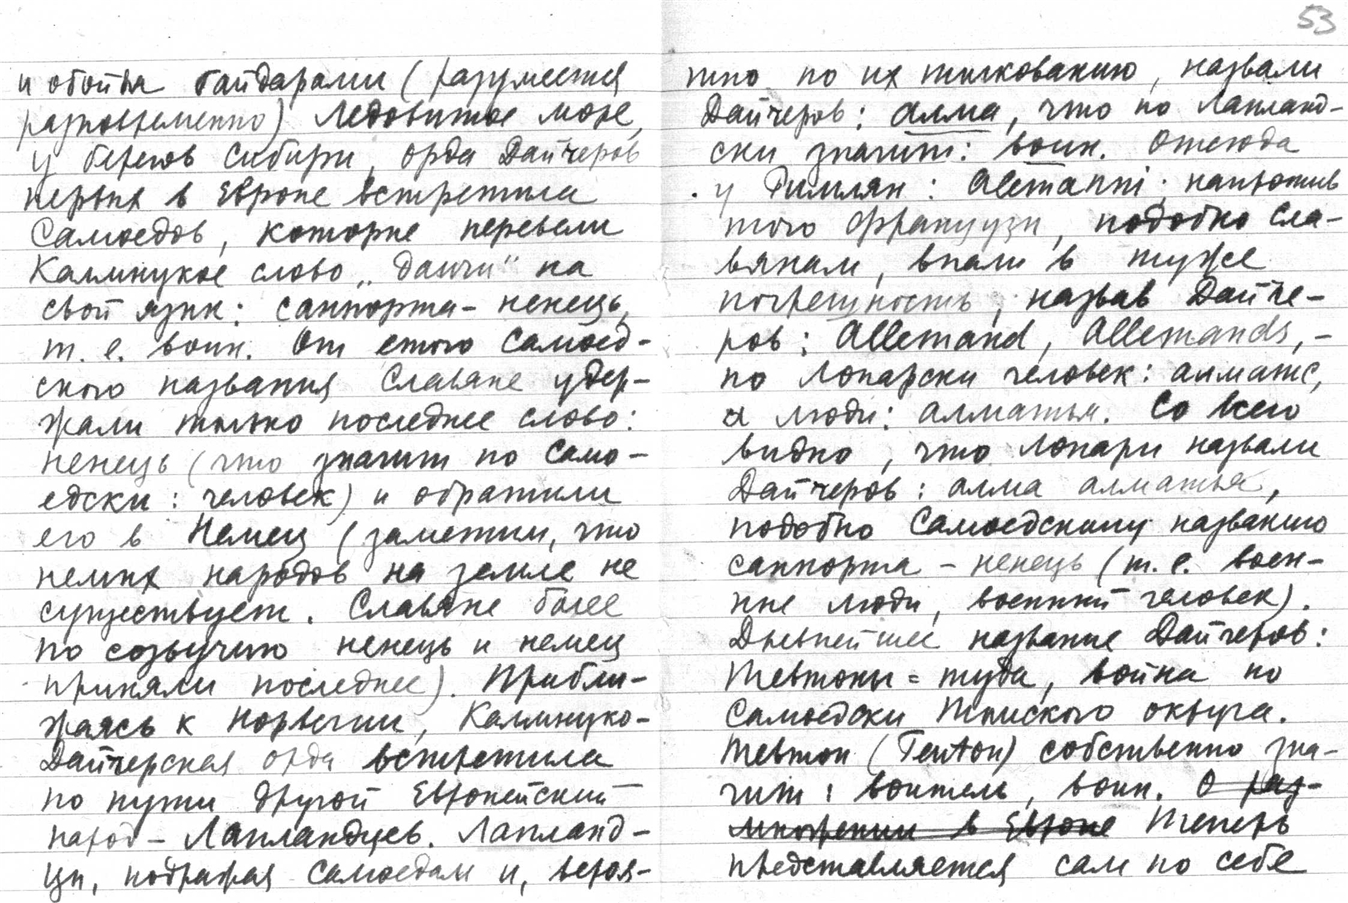 53
и обойдя байдарами (разумеется
разновременно) Ледовитое море,
у берегов Сибири, орда Дайчеров
первых в Европе встретила
Самоедов, которые перевели
Калмицкое слово „дайчи" на
свой язык: саппорта - ненець,
т.е. воин. От етого Самоед-
ского названия Славяне удер-
жали только последнее слово:
ненець (что значит по Само-
едски: человек) и обратили
его в Немец (заметим, что
немых народов на земле не
существует. Славяне более
по созвучию ненець и немец
приняли последнее). Прибли-
жаясь к Норвегии, Калмыко-
Дайчерская орда встретила
по пути другой Европейский
народ - Лапландцев. Лапланд-
цы, подражая Самоедам и, вероя-
тно по их толкованию, назвали
Дайчеров: алма, что по Лапланд-
ски значит: воин. Отсюда
у Римлян: Alemanni; напротив
того Французы, подобно Сла-
вянам, впали в туже
погрешность, назвав Дайче-
ров: Allemand, Allemands, -
по Лопарски человек: алматс,
а люди: алматья. Со всего
видно, что Лопари назвали
Дайчеров: алма алматья,
подобно Самоедскому названию
саппорта - ненець (т.е. воен-
ные люди, военный человек).
Древнейшее название Дайчеров:
Тевтоны = туда, война по
Самоедски Томского округа.
Тевтон (Teuton) собственно зна-
чит: воитель, воин. О раз-
множении в Европе Теперь
представляется сам по себе